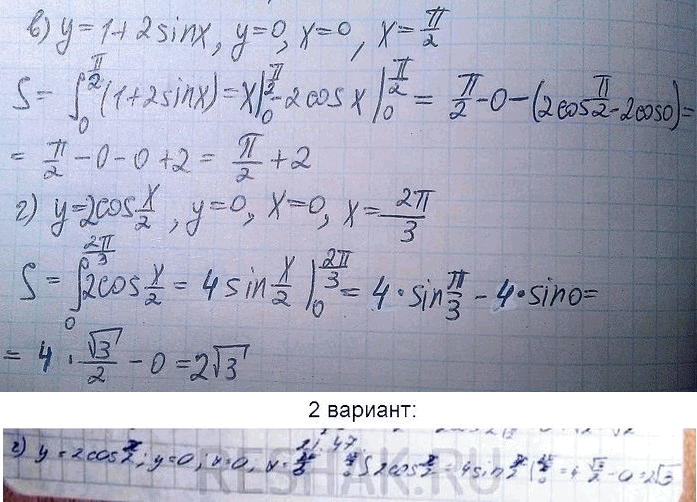 в) y=1+2sinx, y=0, x=0, x=π/2
S= ∫₀^(π/2) (1+2sinx) = x|₀^(π/2) -2cosx|₀^(π/2) = π/2-0-(2cosπ/2-2cos0)=
= π/2-0-0+2 = π/2+2
г) y=2cos x/2, y=0, x=0, x=2π/3
S= ∫₀^(2π/3) 2cos x/2 = 4sin x/2|₀^(2π/3) = 4·sin π/3 - 4·sin0=
= 4·√3/2-0=2√3
2 вариант:
г) y=2cos x/2; y=0; x=0, x= ∫2cos x/2 = 4sin x/2 | =4 √3/2 -0=2√3
RESHAK.RU